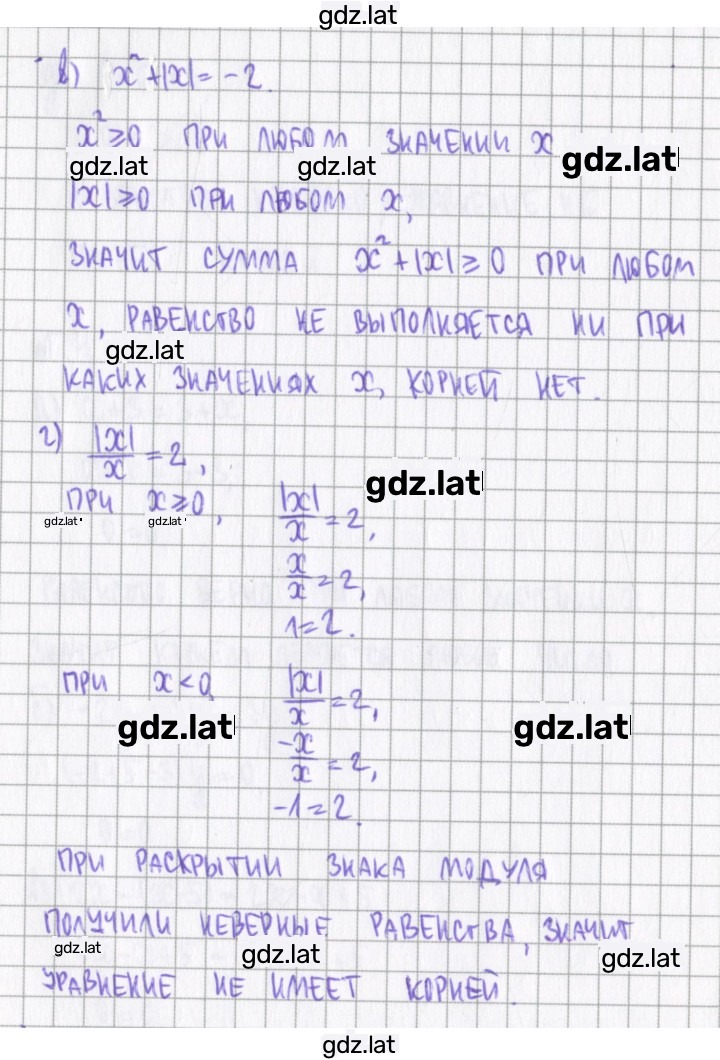 gdz.lat
в) x²+|x|=-2.
x²≥0 ПРИ ЛЮБОМ ЗНАЧЕНИИ x
gdz.lat gdz.lat gdz.lat
|x|≥0 ПРИ ЛЮБОМ x,
ЗНАЧИТ СУММА x²+|x|≥0 ПРИ ЛЮБОМ
x, РАВЕНСТВО НЕ ВЫПОЛНЯЕТСЯ НИ ПРИ
gdz.lat
КАКИХ ЗНАЧЕНИЯХ x, КОРНЕЙ НЕТ.
г) |x|/x = 2,
gdz.lat
ПРИ x≥0, |x|/x = 2,
gdz.lat gdz.lat
x/x = 2,
1=2.
ПРИ x<0 |x|/x = 2,
gdz.lat gdz.lat
-x/x = 2,
-1=2.
ПРИ РАСКРЫТИИ ЗНАКА МОДУЛЯ
ПОЛУЧИЛИ НЕВЕРНЫЕ РАВЕНСТВА, ЗНАЧИТ
gdz.lat gdz.lat gdz.lat
УРАВНЕНИЕ НЕ ИМЕЕТ КОРНЕЙ.
gdz.lat